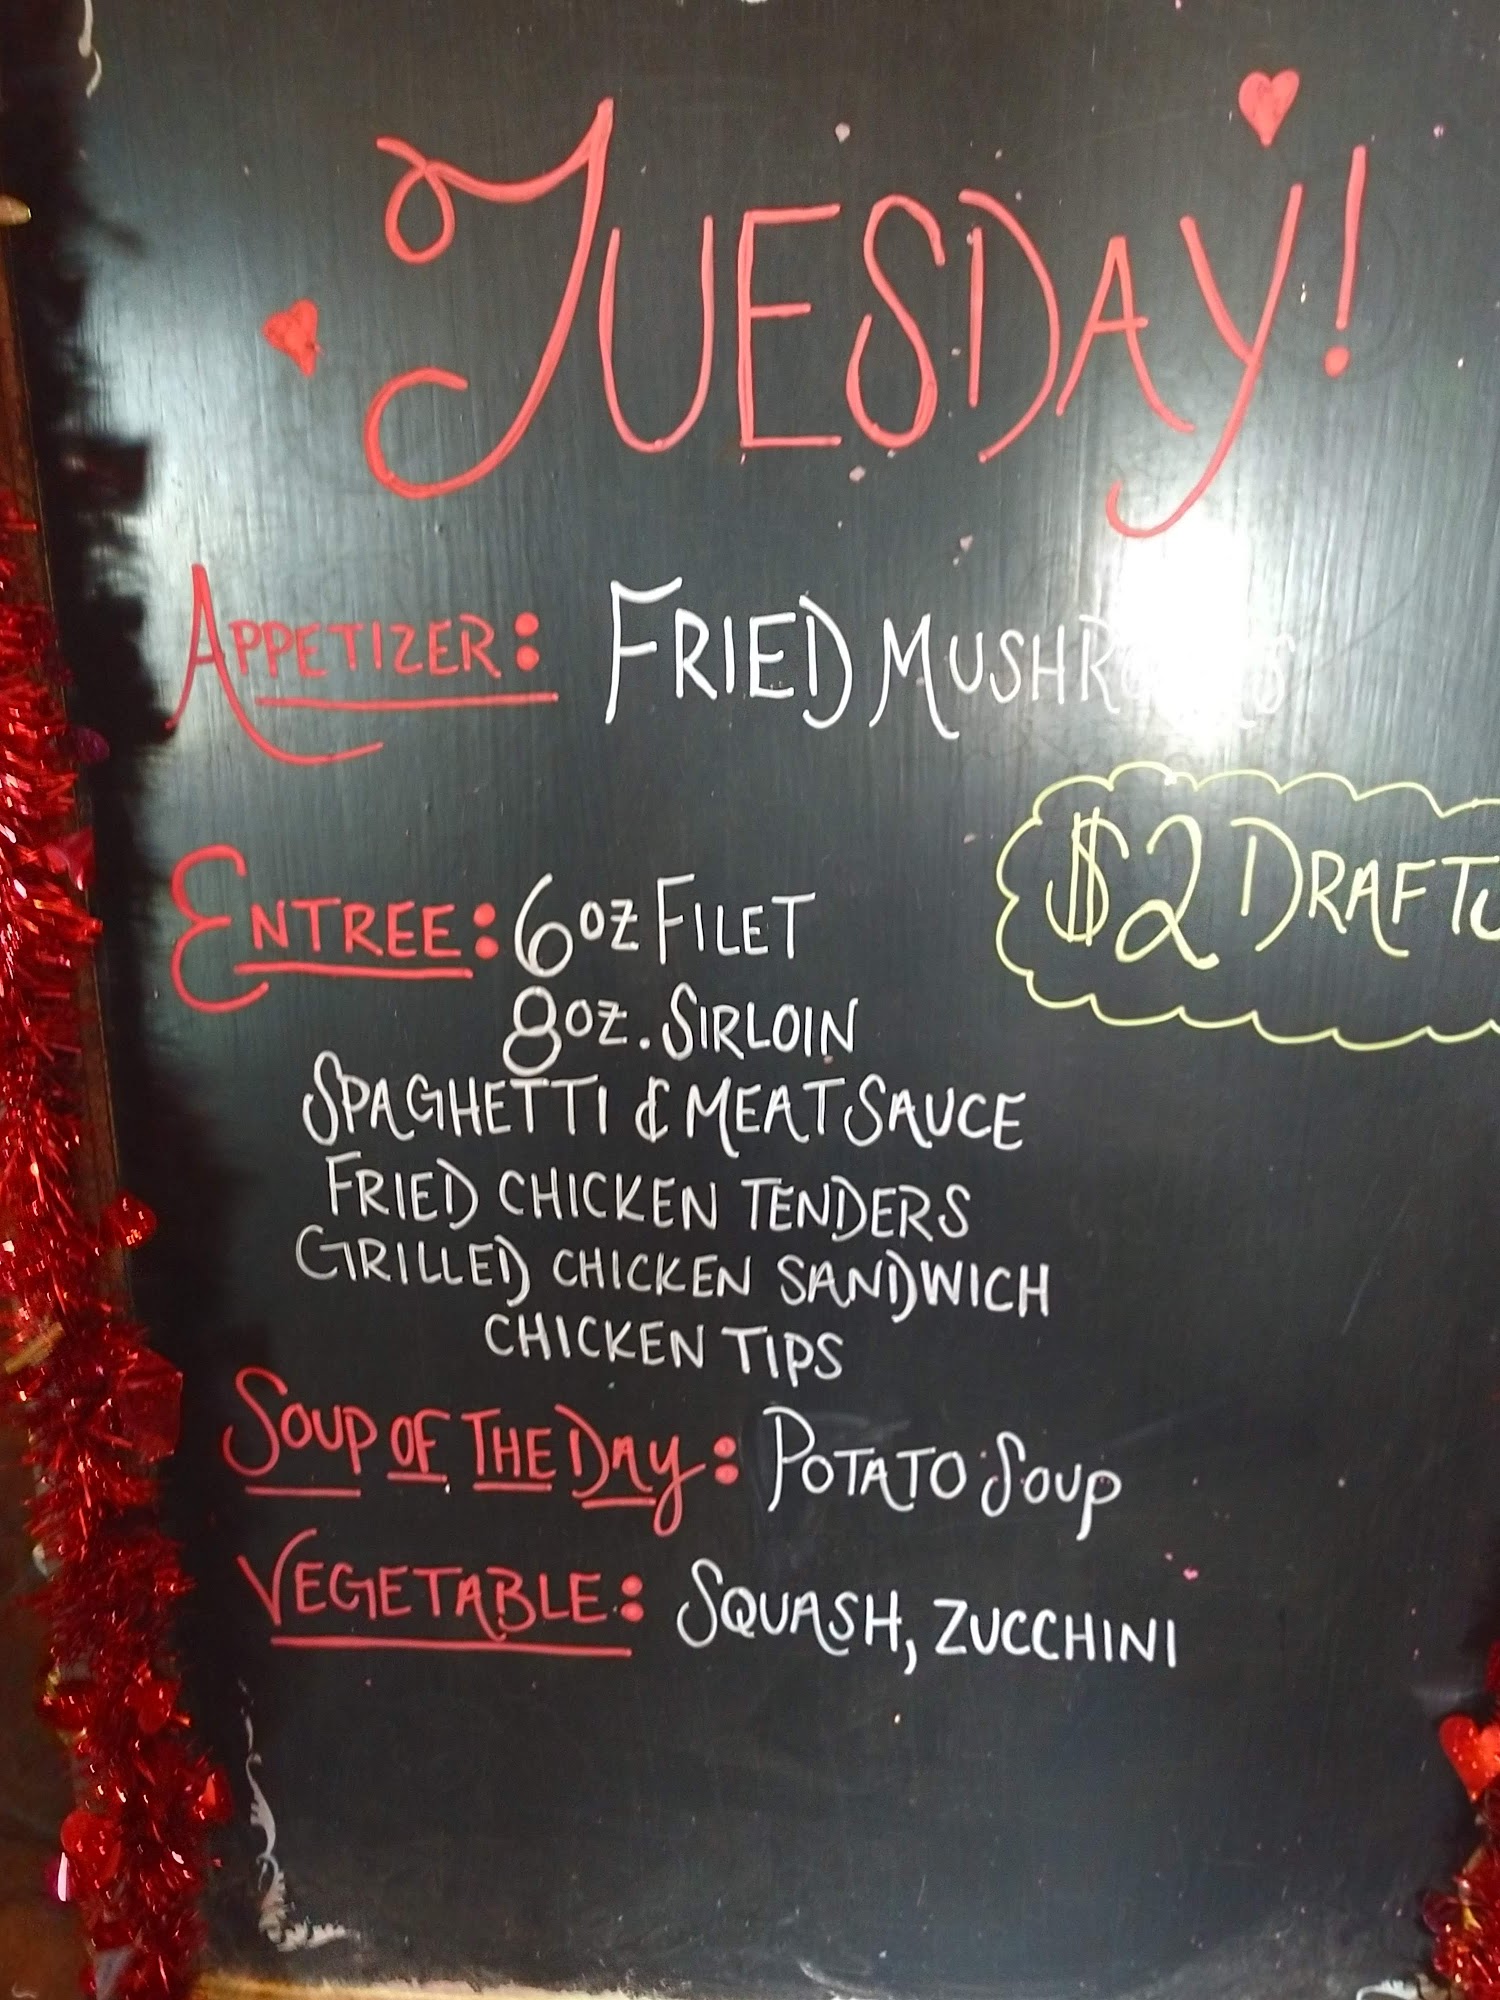 TUESDAY!
APPETIZER: FRIED MUSHROOMS
$2 DRAFT
ENTREE: 6oz FILET
8oz. SIRLOIN
SPAGHETTI & MEAT SAUCE
FRIED CHICKEN TENDERS
GRILLED CHICKEN SANDWICH
CHICKEN TIPS
SOUP OF THE DAY: POTATO SOUP
VEGETABLE: SQUASH, ZUCCHINI